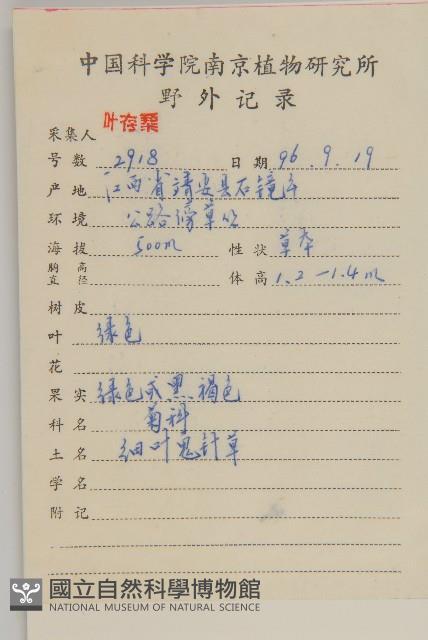 中国科学院南京植物研究所
野外记录
采集人 叶存粟
号数 2918 日期 96.9.19
产地 江西省靖安县石镜乡
环境 公路滂草丛
海拔 500m 性状 草本
胸高直径 体高 1.2-1.4m
树皮
叶 绿色
花
果实 绿色或黑褐色
科名 菊科
土名 细叶鬼针草
学名
附记
國立自然科學博物館
NATIONAL MUSEUM OF NATURAL SCIENCE